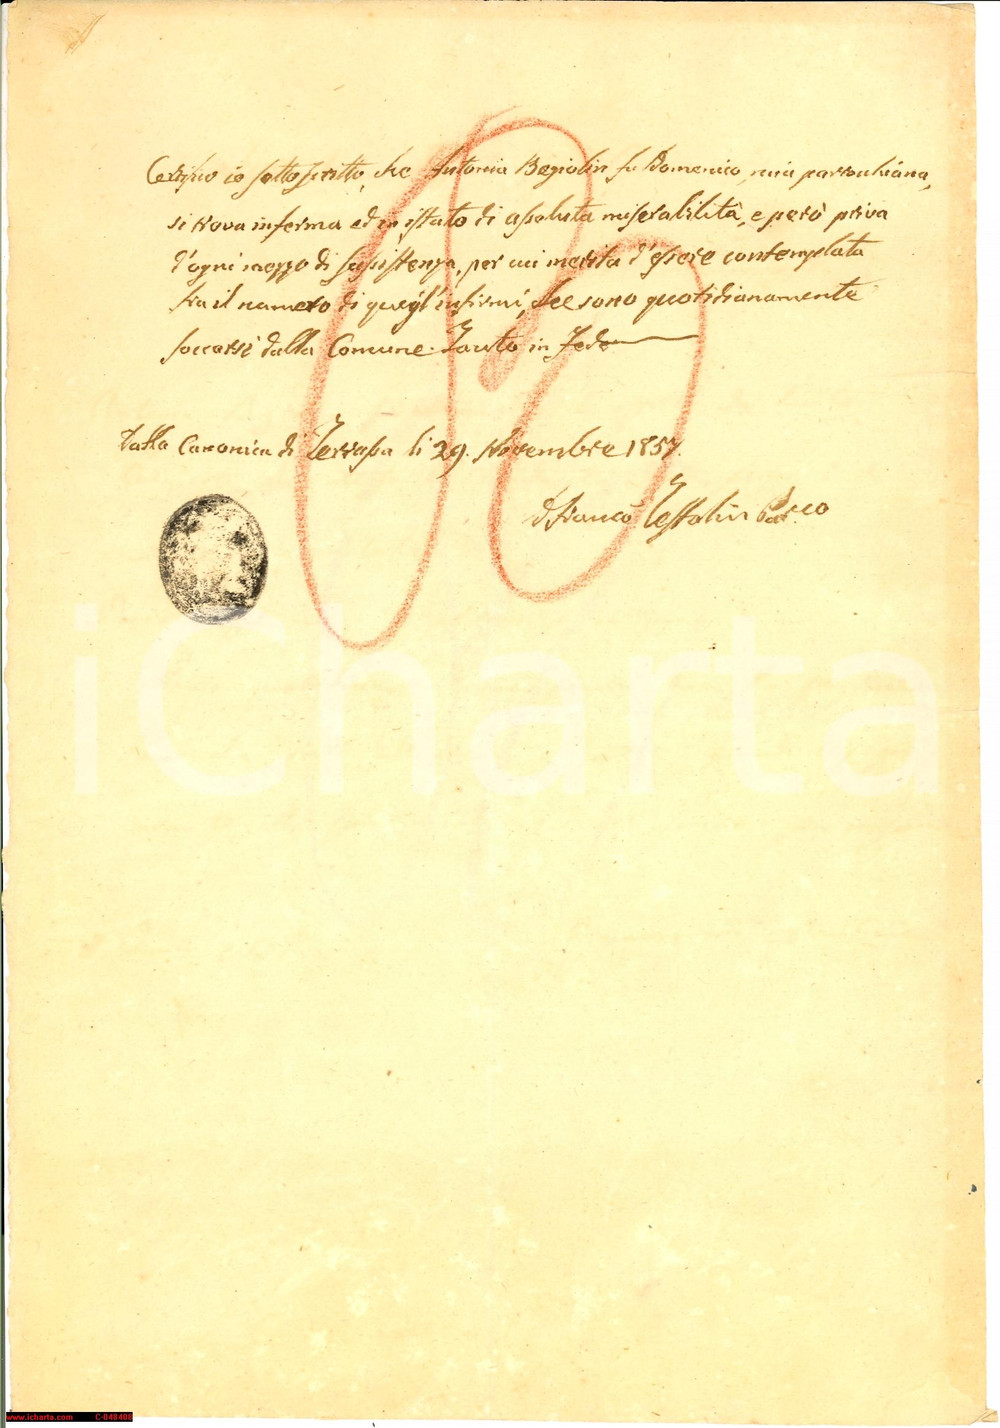 Certifico io sottoscritto, che Antonia Begiolin fu Domenico, mia parrochiana,
si trova inferma ed in istato di assoluta miserabilità, e però priva
d'ogni mezzo di sussistenza, per cui merita d'essere contemplata
fra il numero di quegl'infermi, che sono quotidianamente
soccorsi dalla Comune. Tanto in Fede
Dalla Canonica di Terrassa li 29. Novembre 1857.
D. Franco Testolin Parco
iCharta
www.icharta.com C-048488